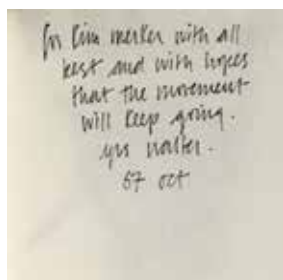 for kim merker with all
best and with hopes
that the movement
will keep going.
yrs walter.
67 oct